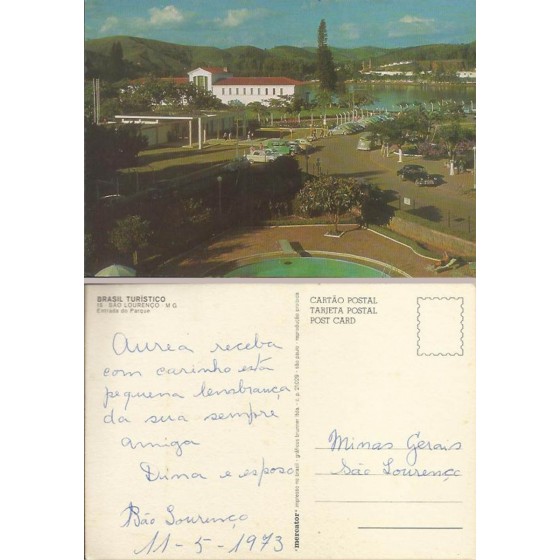 BRASIL TURÍSTICO
19 - SÃO LOURENÇO - M G
Entrada do Parque
Aurea receba
com carinho esta
pequena lembrança
da sua sempre
amiga
Dina e esposo
São Lourenço
11-5-1973
mercator • impresso no brasil - gráficos brunner ltda. - c. p. 21.029 - são paulo - reprodução proibida
CARTÃO POSTAL
TARJETA POSTAL
POST CARD
Minas Gerais
São Lourenço